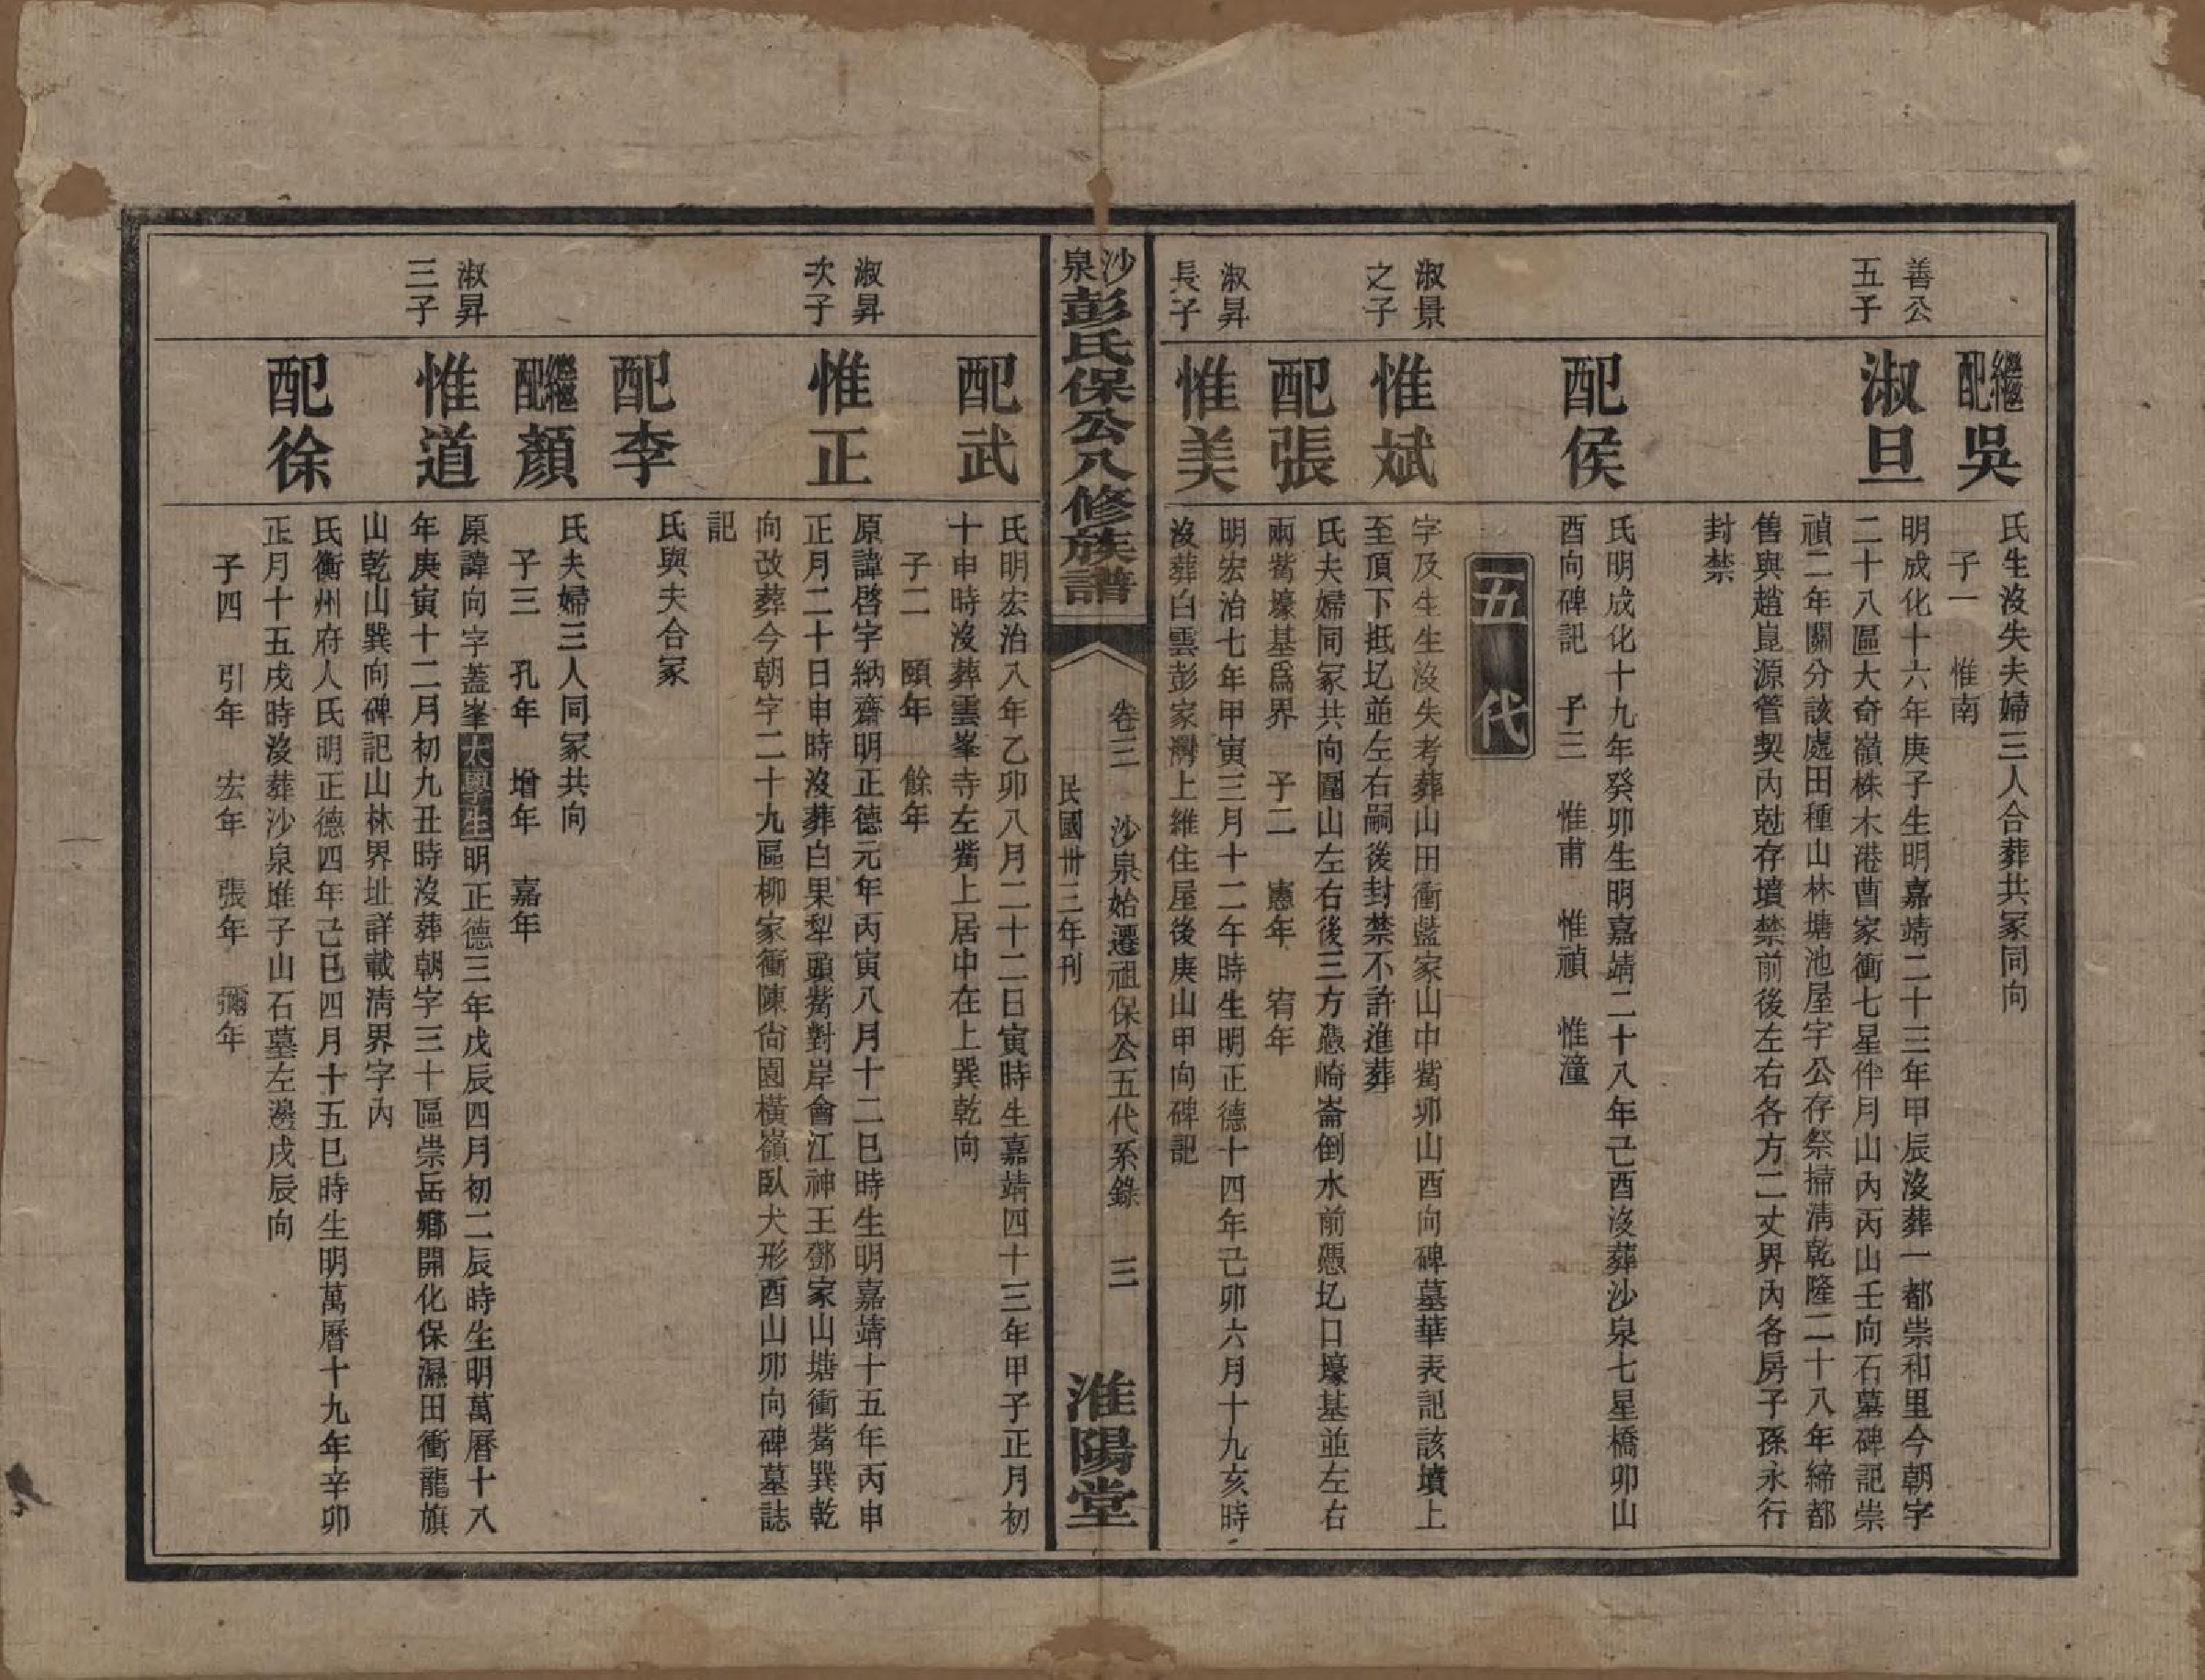 繼配吳
氏生沒失夫婦三人合葬共冢同向
子一　惟南
善公五子
淑旦
明成化十六年庚子生明嘉靖二十三年甲辰沒葬一都崇和里今朝字
二十八區大奇嶺株木港曹家衝七星伴月山內丙山壬向石墓碑記崇
禎二年鬮分該處田種山林塘池屋宇公存祭掃淸乾隆二十八年締都
售與趙崑源管契內尅存墳禁前後左右各方二丈界內各房子孫永行
封禁
配侯
氏明成化十九年癸卯生明嘉靖二十八年己酉沒葬沙泉七星橋卯山
酉向碑記　子三　惟甫　惟禎　惟潼
五代
淑景之子
惟斌
字及生生沒失考葬山田衝藍家山中嘴卯山酉向碑墓華表記該墳上
至頂下抵圫並左右嗣後封禁不許進葬
配張
氏夫婦同冢共向圍山左右後三方憑崎崙倒水前憑圫口壕基並左右
兩嘴壕基爲界　子二　憲年　宥年
淑昇長子
惟美
明宏治七年甲寅三月十二午時生明正德十四年己卯六月十九亥時
沒葬白雲彭家灣上維住屋後庚山甲向碑記
沙泉彭氏保公八修族譜
卷三　沙泉始遷祖保公五代系錄　三
民國卅三年刊
淮陽堂
配武
氏明宏治八年乙卯八月二十二日寅時生嘉靖四十三年甲子正月初
十申時沒葬雲峯寺左嘴上居中在上巽乾向
子二　頤年　餘年
淑昇次子
惟正
原諱啓字納齋明正德元年丙寅八月十二巳時生明嘉靖十五年丙申
正月二十日申時沒葬白果犁頭嘴對岸會江神王鄧家山塘衝嘴巽乾
向改葬今朝字二十九區柳家衝陳尙園橫嶺臥犬形酉山卯向碑墓誌
記
配李
氏與夫合冢
繼配顏
氏夫婦三人同冢共向
子三　孔年　增年　嘉年
淑昇三子
惟道
原諱向字蓋峯太學生明正德三年戊辰四月初二辰時生明萬曆十八
年庚寅十二月初九丑時沒葬朝字三十區崇岳鄉開化保濕田衝龍旗
山乾山巽向碑記山林界址詳載淸界字內
配徐
氏衡州府人氏明正德四年己巳四月十五巳時生明萬曆十九年辛卯
正月十五戌時沒葬沙泉堆子山石墓左邊戌辰向
子四　引年　宏年　張年　彌年